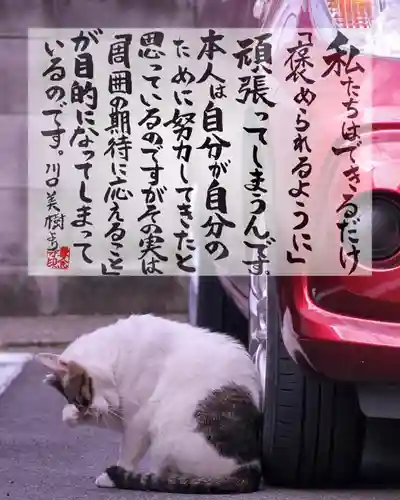 私たちはできるだけ
「褒められるように」
頑張ってしまうんです。
本人は自分が自分の
ために努力してきたと
思っているのですがその実は
「周囲の期待に応えること」
が目的になってしまって
いるのです。川口美樹